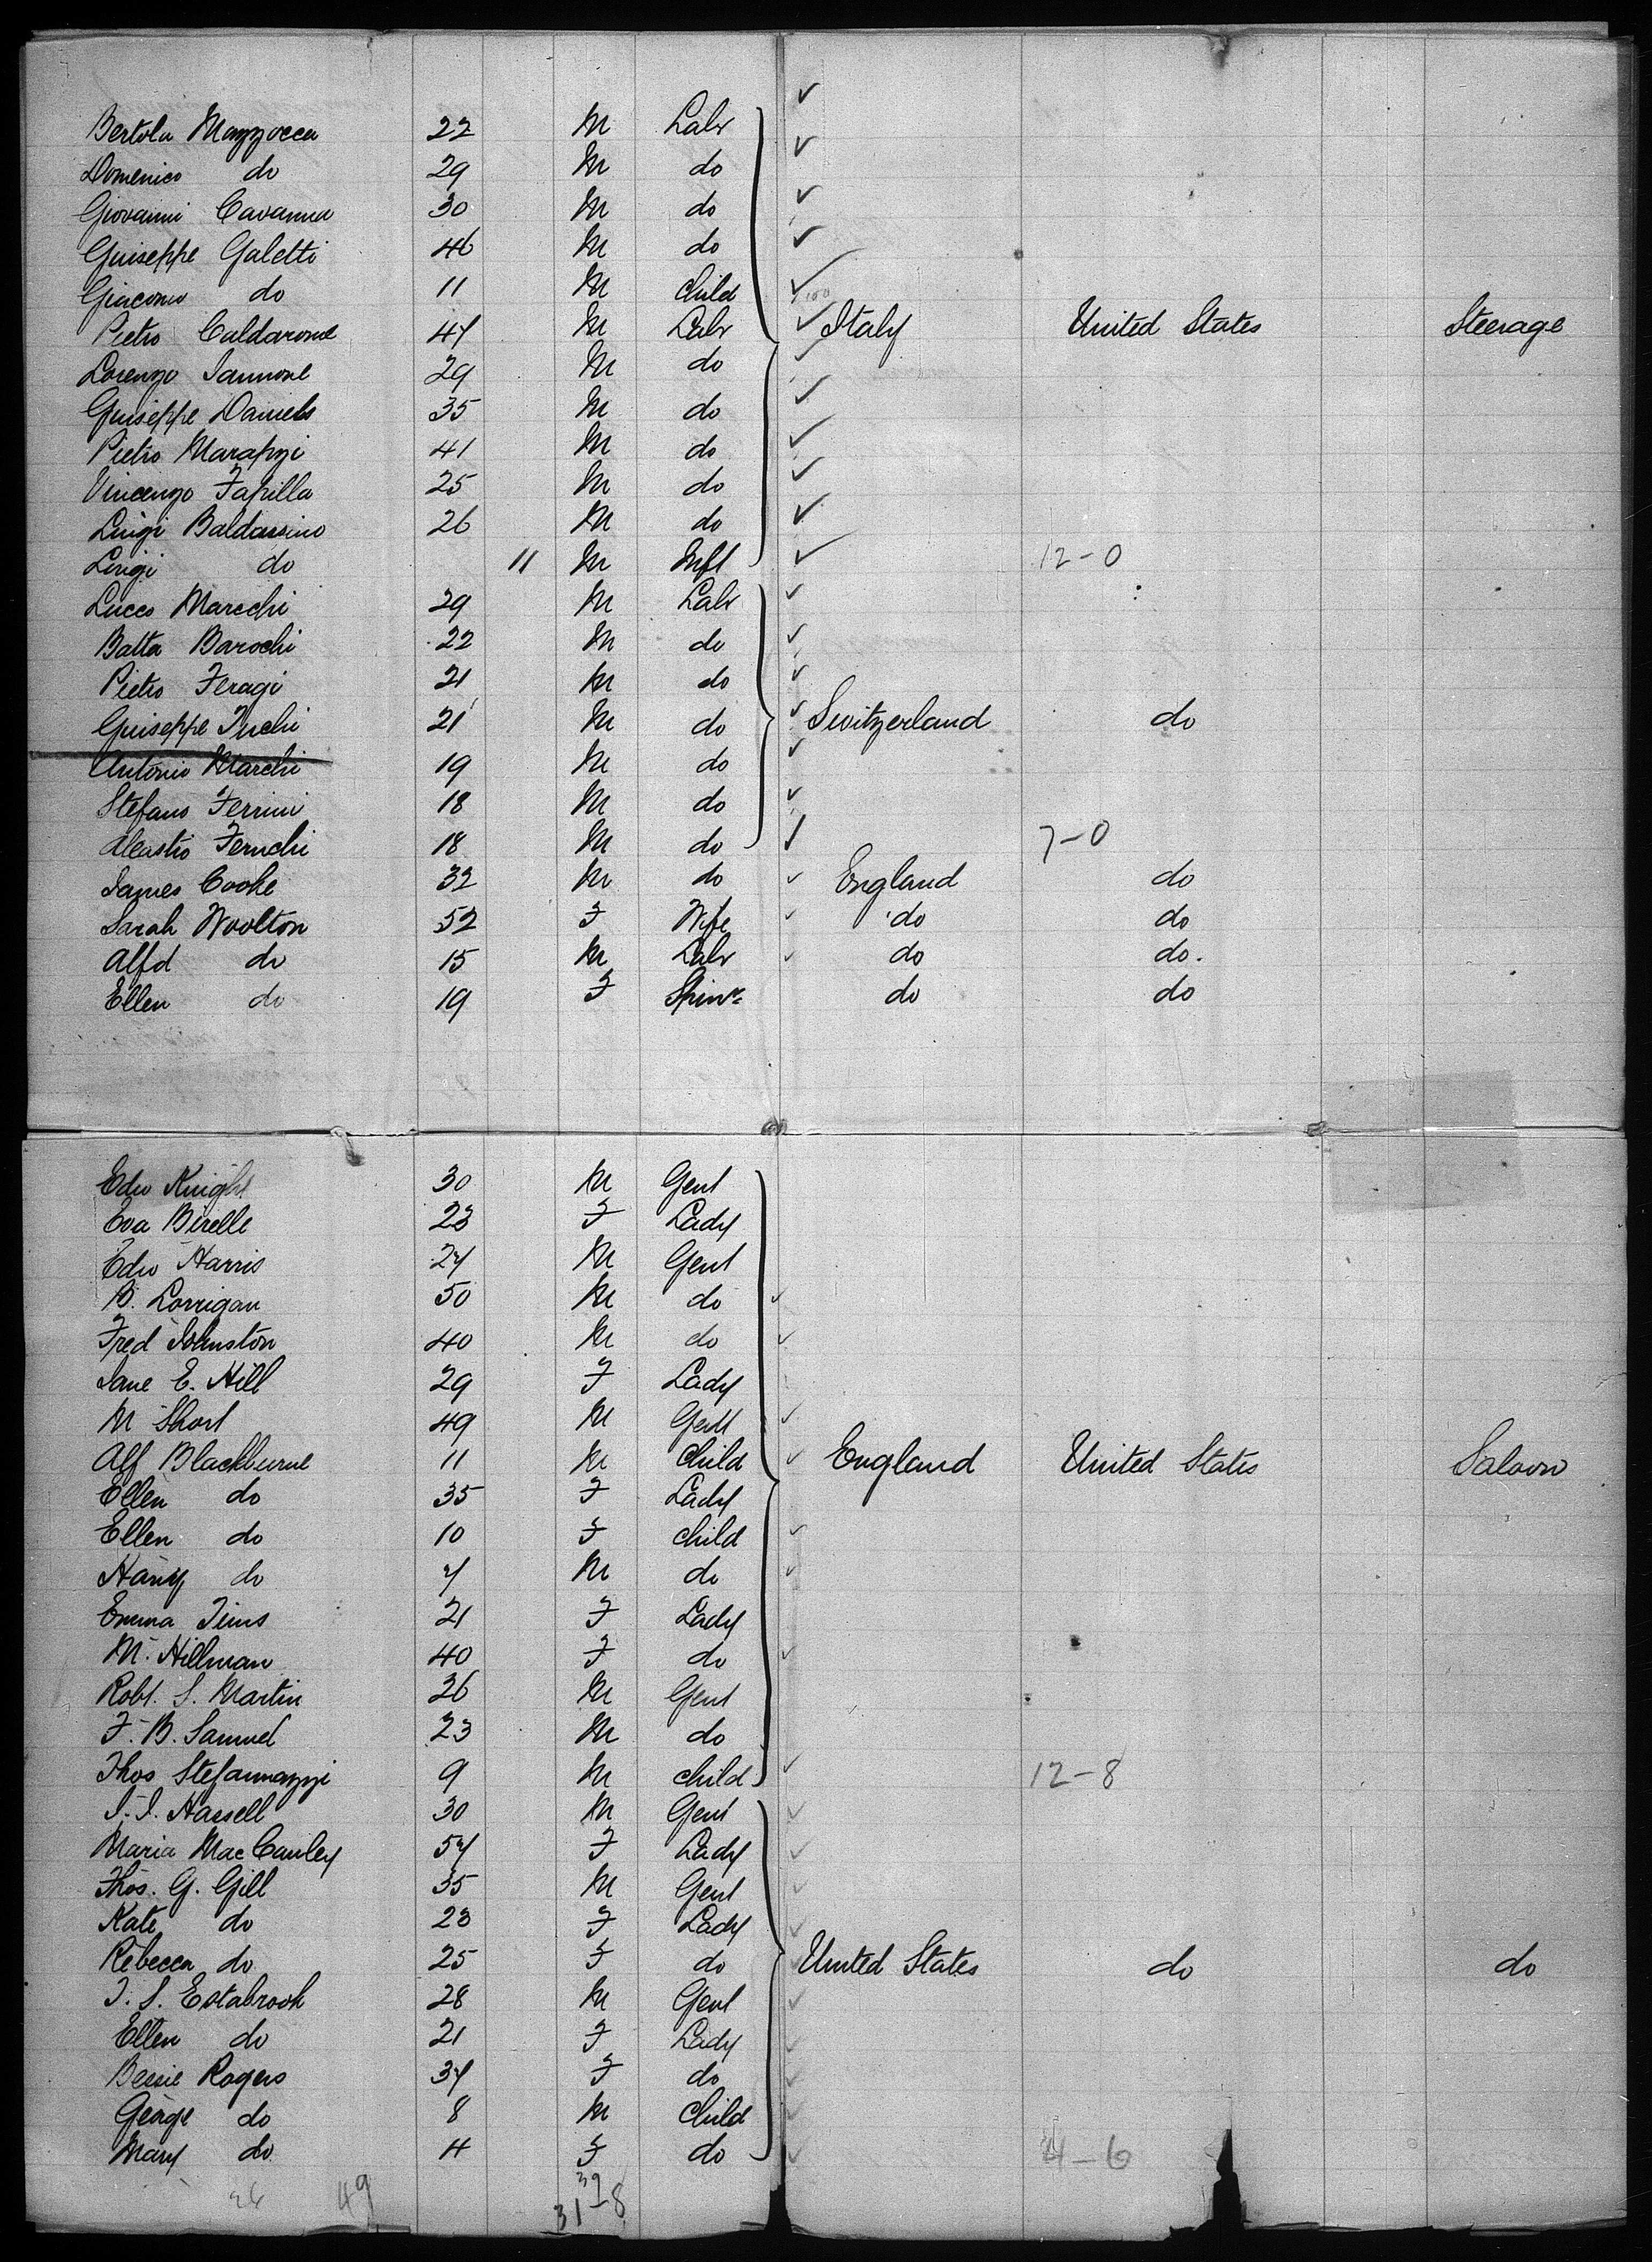 Bertola Mazzocca 22 M Labr
Domenico do 29 M do
Giovanni Cavanna 30 M do
Guiseppe Galetti 46 M do
Giacomo do 11 M Child
Pietro Caldarone 47 M Labr Italy United States Steerage
Lorenzo Iannone 29 M do
Guiseppe Daniels 35 M do
Pietro Marapzi 41 M do
Vincenzo Fapilla 25 M do
Luigi Baldassino 26 M do
Luigi do 11 M Inft 12-0
Lucco Marcchi 29 M Labr
Batta Barochi 22 M do
Pietro Feragi 21 M do
Guiseppe Tuchi 21 M do Switzerland do
Antonio Marchi 19 M do
Stefano Ferrini 18 M do
Feruchi 18 M do 7-0
James Cooke 32 M do England do
Sarah Woolton 52 F Wife do do
Alfd do 15 M Labr do do.
Ellen do 19 F Spinr do do
Edw Knight 30 M Gent
Eva Birelle 23 F Lady
Edw Harris 24 M Gent
B. Lorrigan 50 M do
Fred Johnston 40 M do
Jane E. Hill 29 F Lady
M Short 49 M Gent
Alf Blackburne 11 M Child England United States Saloon
Ellen do 35 F Lady
Ellen do 10 F child
Harry do 7 M do
Emma Tims 21 F Lady
M. Hillman 40 F do
Robt. S. Martin 26 M Gent
F. B. Samuel 23 M do
Thos Stefannazzi 9 M child 12-8
J. J. Hassell 30 M Gent
Maria MacCauley 54 F Lady
Thos. G. Gill 35 M Gent
Kate do 23 F Lady
Rebecca do 25 F do United States do do
J. S. Estabrook 28 M Gent
Ellen do 21 F Lady
Bessie Rogers 34 F do
George do 8 M Child
Mary do 4 F do 4-6
26 49 39
31-8